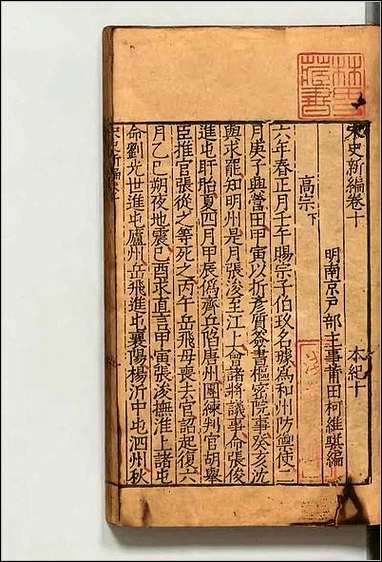 宋史新編卷十　本紀十
明南京戸部主事莆田柯維騏編
高宗下
六年春正月壬午賜宗子伯玖名璩為和州防禦使二
月庚子興營田甲寅以折彥質簽書樞密院事癸亥沈
與求罷知明州是月張浚至江上會諸將議事命張俊
進屯盱眙夏四月甲辰偽齊兵陷唐州團練判官胡舉
臣推官張從之等死之丙午岳飛母喪去官詔起復六
月乙巳朔夜地震己酉求直言甲寅張浚撫淮上諸屯
命劉光世進屯廬州岳飛進屯襄陽楊沂中屯泗州秋
宋史新編卷